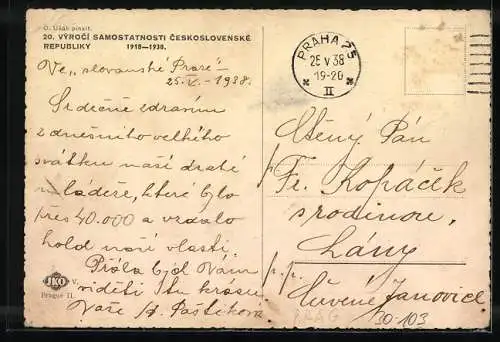 O. Ušák pinxit.
20. VÝROČÍ SAMOSTATNOSTI ČESKOSLOVENSKÉ
REPUBLIKY 1918-1938.
Ve „slovanské Praze"
25.V.-1938.
Srdečně zdravím
z dnešního velkého
svátku naší drahé
mládeže, které bylo
přes 40.000 a vzdalo
hold naší vlasti.
Přála bych Vám
viděti tu krásu
Vaše Paštiková
JKO
V.
Prague II.
PRAHA 25
25 V 38
19-20
II
Ctěný Pán
Fr. Kopáček
s rodinou,
Lány
p. p.
Červené Janovice
PRAG
30-103